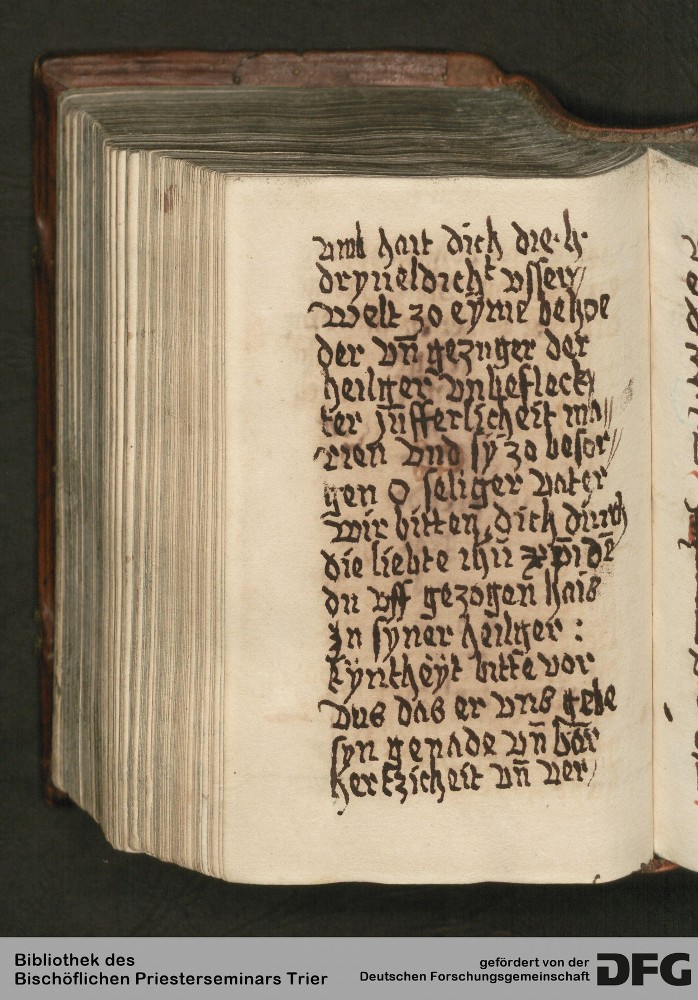 vmb hait dich die · h ·
dryueldicht vsser
welt zo eyme behoe
der vn̄ gezuger der
heilger vnbefleck
ter jūfferlicheit ma
rien vnd sy zo besor
gen O seliger vater
wir bitten dich durch
die liebte ihū xp̄i dē
du vff gezogen hais
In syner heilger :
kyntheyt bitte vor
vns das er vns gebe
syn genade vn̄ bār
hertzicheit vn̄ ver
Bibliothek des
Bischöflichen Priesterseminars Trier
gefördert von der
Deutschen Forschungsgemeinschaft DFG